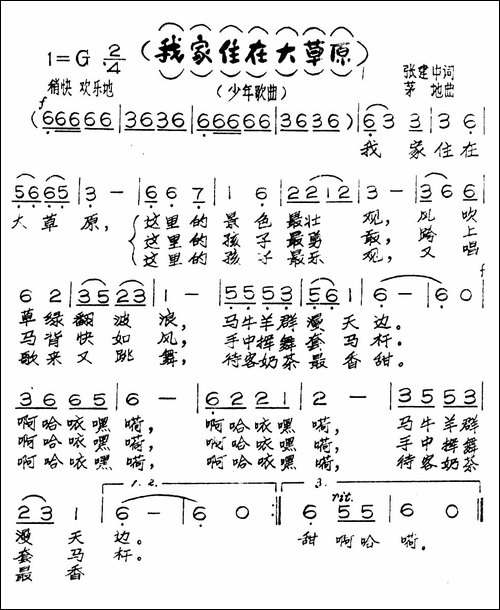 1=G 2/4 (我家住在大草原)
稍快 欢乐地 (少年歌曲) 张建中词
茅地曲
f
(66666|3636|66666|3636)|63 3|3 6|
我 家 住 在
5665|3 -|6 6 7|1 6|2212|3 -|3 6 6|
大草 原, 这里的 景 色 最壮 观, 风 吹
这里的 孩 子 最勇 敢, 跨 上
这里的 孩 子 最乐 观, 又 唱
f
6 2|3523|1 -|5553|561|6 -|6 0|
草 绿 翻 波 浪, 马牛羊群 漫天 边。
马 背 快 如 风, 手中挥舞 套马 杆。
歌 来 又 跳 舞, 待客奶茶 最香 甜。
3665|6 -|6221|2 -|3553|
啊哈哝嘿 嗬, 啊哈哝嘿 嗬, 马牛羊群
啊哈哝嘿 嗬, 啊哈哝嘿 嗬, 手中挥舞
啊哈哝嘿 嗬, 啊哈哝嘿 嗬, 待客奶茶
1.2. 3.
rit.
23 1|6 -|6 0:|6 55|6 0‖
漫 天 边。 甜 啊哈 嗬。
套 马 杆。
最 香